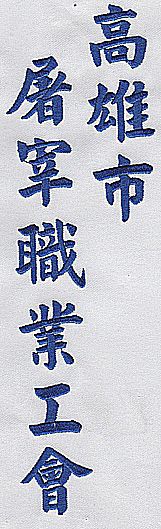 高雄市
屠宰職業工會